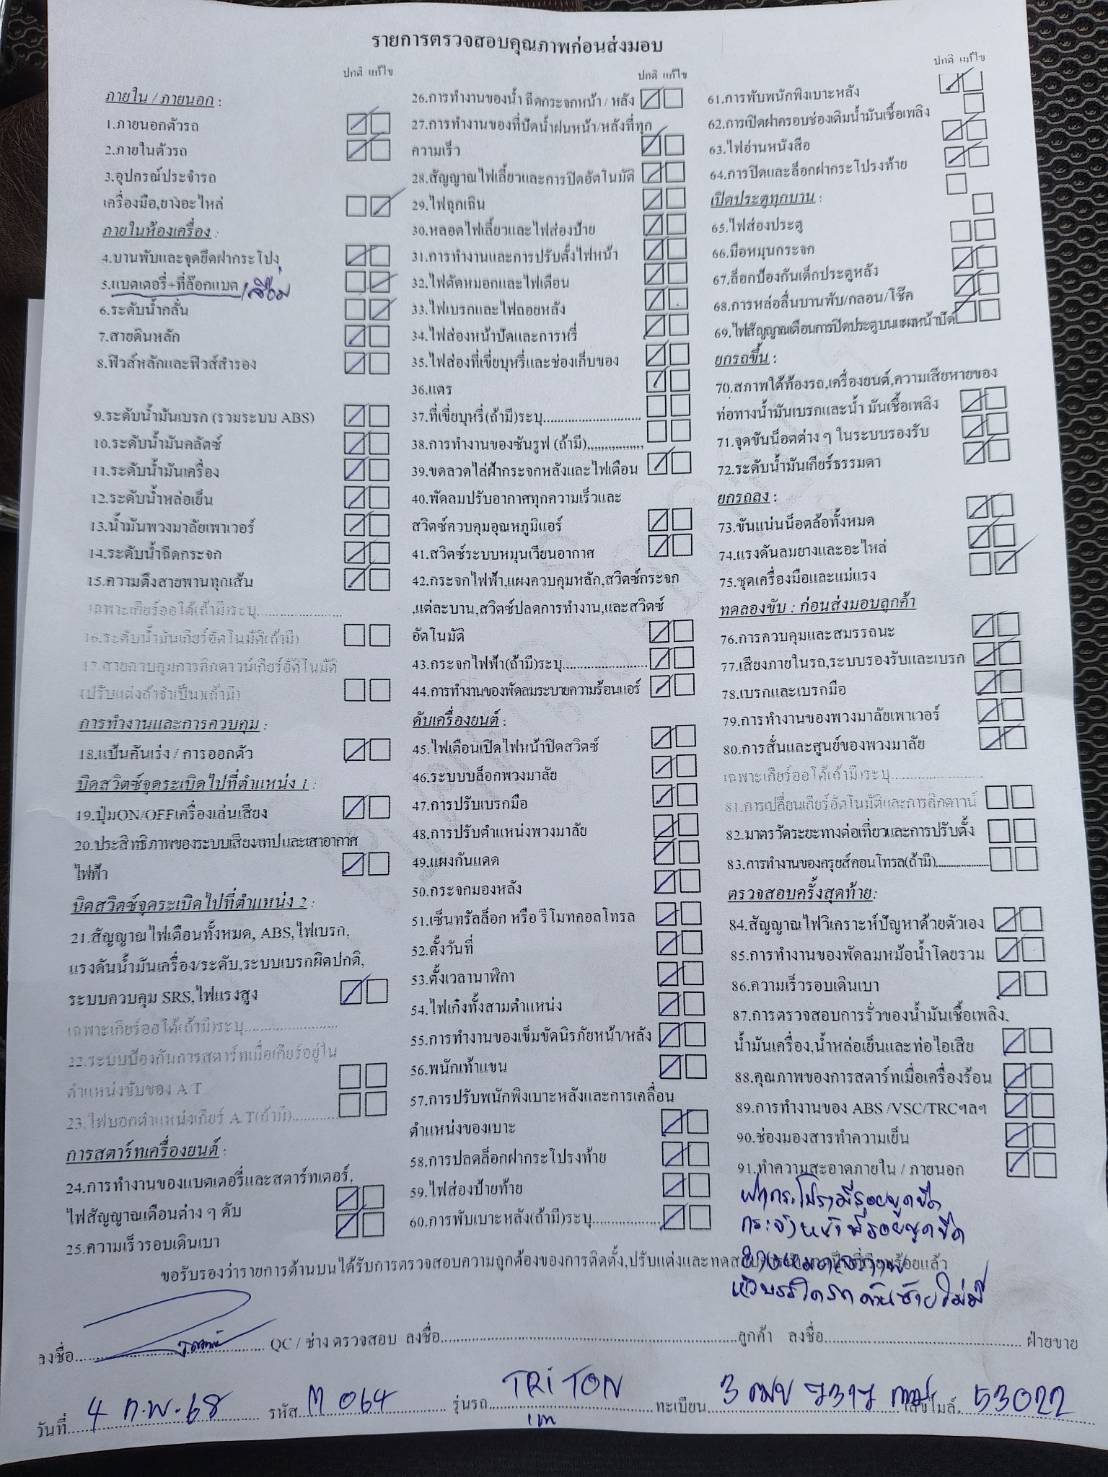 รายการตรวจสอบคุณภาพก่อนส่งมอบ
ปกติ แก้ไข
ภายใน / ภายนอก :
1.ภายนอกตัวรถ
2.ภายในตัวรถ
3.อุปกรณ์ประจำรถ
เครื่องมือ,ยางอะไหล่
ภายในห้องเครื่อง :
4.บานพับและจุดยึดฝากระโปง
5.แบตเตอรี่+ที่ล๊อกแบต/เสื่อม
6.ระดับน้ำกลั่น
7.สายดินหลัก
8.ฟิวส์หลักและฟิวส์สำรอง
9.ระดับน้ำมันเบรก (รวมระบบ ABS)
10.ระดับน้ำมันคลัตซ์
11.ระดับน้ำมันเครื่อง
12.ระดับน้ำหล่อเย็น
13.น้ำมันพวงมาลัยเพาเวอร์
14.ระดับน้ำฉีดกระจก
15.ความตึงสายพานทุกเส้น
เฉพาะเกียร์ออโต้(ถ้ามี)ระบุ
16.ระดับน้ำมันเกียร์อัตโนมัติ(ถ้ามี)
17.สายควบคุมการคิกดาวน์เกียร์อัตโนมัติ
(ปรับแต่งถ้าจำเป็น)(ถ้ามี)
การทำงานและการควบคุม :
18.แป้นคันเร่ง / การออกตัว
บิดสวิตซ์จุดระเบิดไปที่ตำแหน่ง 1 :
19.ปุ่มON/OFFเครื่องเล่นเสียง
20.ประสิทธิภาพของระบบเสียงเทปและเสาอากาศ
ไฟฟ้า
บิดสวิตซ์จุดระเบิดไปที่ตำแหน่ง 2 :
21.สัญญาณไฟเตือนทั้งหมด, ABS,ไฟเบรก,
แรงดันน้ำมันเครื่อง/ระดับ,ระบบเบรกผิดปกติ,
ระบบควบคุม SRS,ไฟแรงสูง
เฉพาะเกียร์ออโต้(ถ้ามี)ระบุ
22.ระบบป้องกันการสตาร์ทเมื่อเกียร์อยู่ใน
ตำแหน่งขับของ A/T
23.ไฟบอกตำแหน่งเกียร์ A/T(ถ้ามี)
การสตาร์ทเครื่องยนต์ :
24.การทำงานของแบตเตอรี่และสตาร์ทเตอร์,
ไฟสัญญาณเตือนต่าง ๆ ดับ
25.ความเร็วรอบเดินเบา
ปกติ แก้ไข
26.การทำงานของน้ำ ฉีดกระจกหน้า / หลัง
27.การทำงานของที่ปัดน้ำฝนหน้า/หลังที่ทุก
ความเร็ว
28.สัญญาณไฟเลี้ยวและการปิดอัตโนมัติ
29.ไฟฉุกเฉิน
30.หลอดไฟเลี้ยวและไฟส่องป้าย
31.การทำงานและการปรับตั้งไฟหน้า
32.ไฟตัดหมอกและไฟเตือน
33.ไฟเบรกและไฟถอยหลัง
34.ไฟส่องหน้าปัดและการหรี่
35.ไฟส่องที่เขี่ยบุหรี่และช่องเก็บของ
36.แตร
37.ที่เขี่ยบุหรี่(ถ้ามี)ระบุ
38.การทำงานของซันรูฟ (ถ้ามี)
39.ขดลวดไล่ฝ้ากระจกหลังและไฟเตือน
40.พัดลมปรับอากาศทุกความเร็วและ
สวิตซ์ควบคุมอุณหภูมิแอร์
41.สวิตซ์ระบบหมุนเวียนอากาศ
42.กระจกไฟฟ้า,แผงควบคุมหลัก,สวิตซ์กระจก
,แต่ละบาน,สวิตซ์ปลดการทำงาน,และสวิตซ์
อัตโนมัติ
43.กระจกไฟฟ้า(ถ้ามี)ระบุ
44.การทำงานของพัดลมระบายความร้อนแอร์
ดับเครื่องยนต์ :
45.ไฟเตือนเปิดไฟหน้าปิดสวิตซ์
46.ระบบบล็อกพวงมาลัย
47.การปรับเบรกมือ
48.การปรับตำแหน่งพวงมาลัย
49.แผงกันแดด
50.กระจกมองหลัง
51.เซ็นทรัลล็อก หรือ รีโมทคอลโทรล
52.ตั้งวันที่
53.ตั้งเวลานาฬิกา
54.ไฟเก๋งทั้งสามตำแหน่ง
55.การทำงานของเข็มขัดนิรภัยหน้า/หลัง
56.พนักเท้าแขน
57.การปรับพนักพิงเบาะหลังและการเคลื่อน
ตำแหน่งของเบาะ
58.การปลดล็อกฝากระโปรงท้าย
59.ไฟส่องป้ายท้าย
60.การพับเบาะหลัง(ถ้ามี)ระบุ
ปกติ แก้ไข
61.การพับพนักพิงเบาะหลัง
62.การเปิดฝาครอบช่องเติมน้ำมันเชื้อเพลิง
63.ไฟอ่านหนังสือ
64.การปิดและล็อกฝากระโปรงท้าย
เปิดประตูทุกบาน :
65.ไฟส่องประตู
66.มือหมุนกระจก
67.ล็อกป้องกันเด็กประตูหลัง
68.การหล่อลื่นบานพับ/กลอน/โช๊ค
69.ไฟสัญญาณเตือนการปิดประตูบนแผงหน้าปัด
ยกรถขึ้น :
70.สภาพใต้ท้องรถ,เครื่องยนต์,ความเสียหายของ
ท่อทางน้ำมันเบรกและน้ำ มันเชื้อเพลิง
71.จุดขันน็อตต่าง ๆ ในระบบรองรับ
72.ระดับน้ำมันเกียร์ธรรมดา
ยกรถลง :
73.ขันแน่นน็อตล้อทั้งหมด
74.แรงดันลมยางและอะไหล่
75.ชุดเครื่องมือและแม่แรง
ทดลองขับ : ก่อนส่งมอบลูกค้า
76.การควบคุมและสมรรถนะ
77.เสียงภายในรถ,ระบบรองรับและเบรก
78.เบรกและเบรกมือ
79.การทำงานของพวงมาลัยเพาเวอร์
80.การสั่นและศูนย์ของพวงมาลัย
เฉพาะเกียร์ออโต้(ถ้ามี)ระบุ
81.การเปลี่ยนเกียร์อัตโนมัติและการคิกดาวน์
82.มาตรวัดระยะทางต่อเที่ยวและการปรับตั้ง
83.การทำงานของครูยส์คอนโทรล(ถ้ามี)
ตรวจสอบครั้งสุดท้าย:
84.สัญญาณไฟวิเคราะห์ปัญหาด้วยตัวเอง
85.การทำงานของพัดลมหม้อน้ำโดยรวม
86.ความเร็วรอบเดินเบา
87.การตรวจสอบการรั่วของน้ำมันเชื้อเพลิง,
น้ำมันเครื่อง,น้ำหล่อเย็นและท่อไอเสีย
88.คุณภาพของการสตาร์ทเมื่อเครื่องร้อน
89.การทำงานของ ABS /VSC/TRCฯลฯ
90.ช่องมองสารทำความเย็น
91.ทำความสะอาดภายใน / ภายนอก
ฝากระโปรงมีรอยขูดขีด
กระจังหน้ามีรอยขูดขีด
ด้านซ้ายไม่มี
ขอรับรองว่ารายการด้านบนได้รับการตรวจสอบความถูกต้องของการติดตั้ง,ปรับแต่งและทดสอบ เรียบร้อยแล้ว
ลงชื่อ QC / ช่าง ตรวจสอบ ลงชื่อ ลูกค้า ลงชื่อ ฝ่ายขาย
วันที่ 4 ก.พ.68 รหัส M 064 รุ่นรถ TRITON ทะเบียน 3 เลขไมล์ 53022